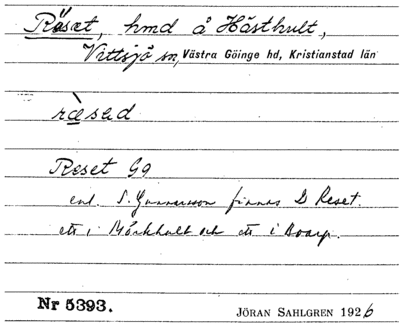 Röset, hmd å Hästhult,
Vittsjö sn, Västra Göinge hd, Kristianstad län
ræ̀sed
Reset Gg
enl. S. Gunnarsson finnas 2 Reset.
ett i Mörkhult och ett i Boarp.
Nr 5393. JÖRAN SAHLGREN 1926